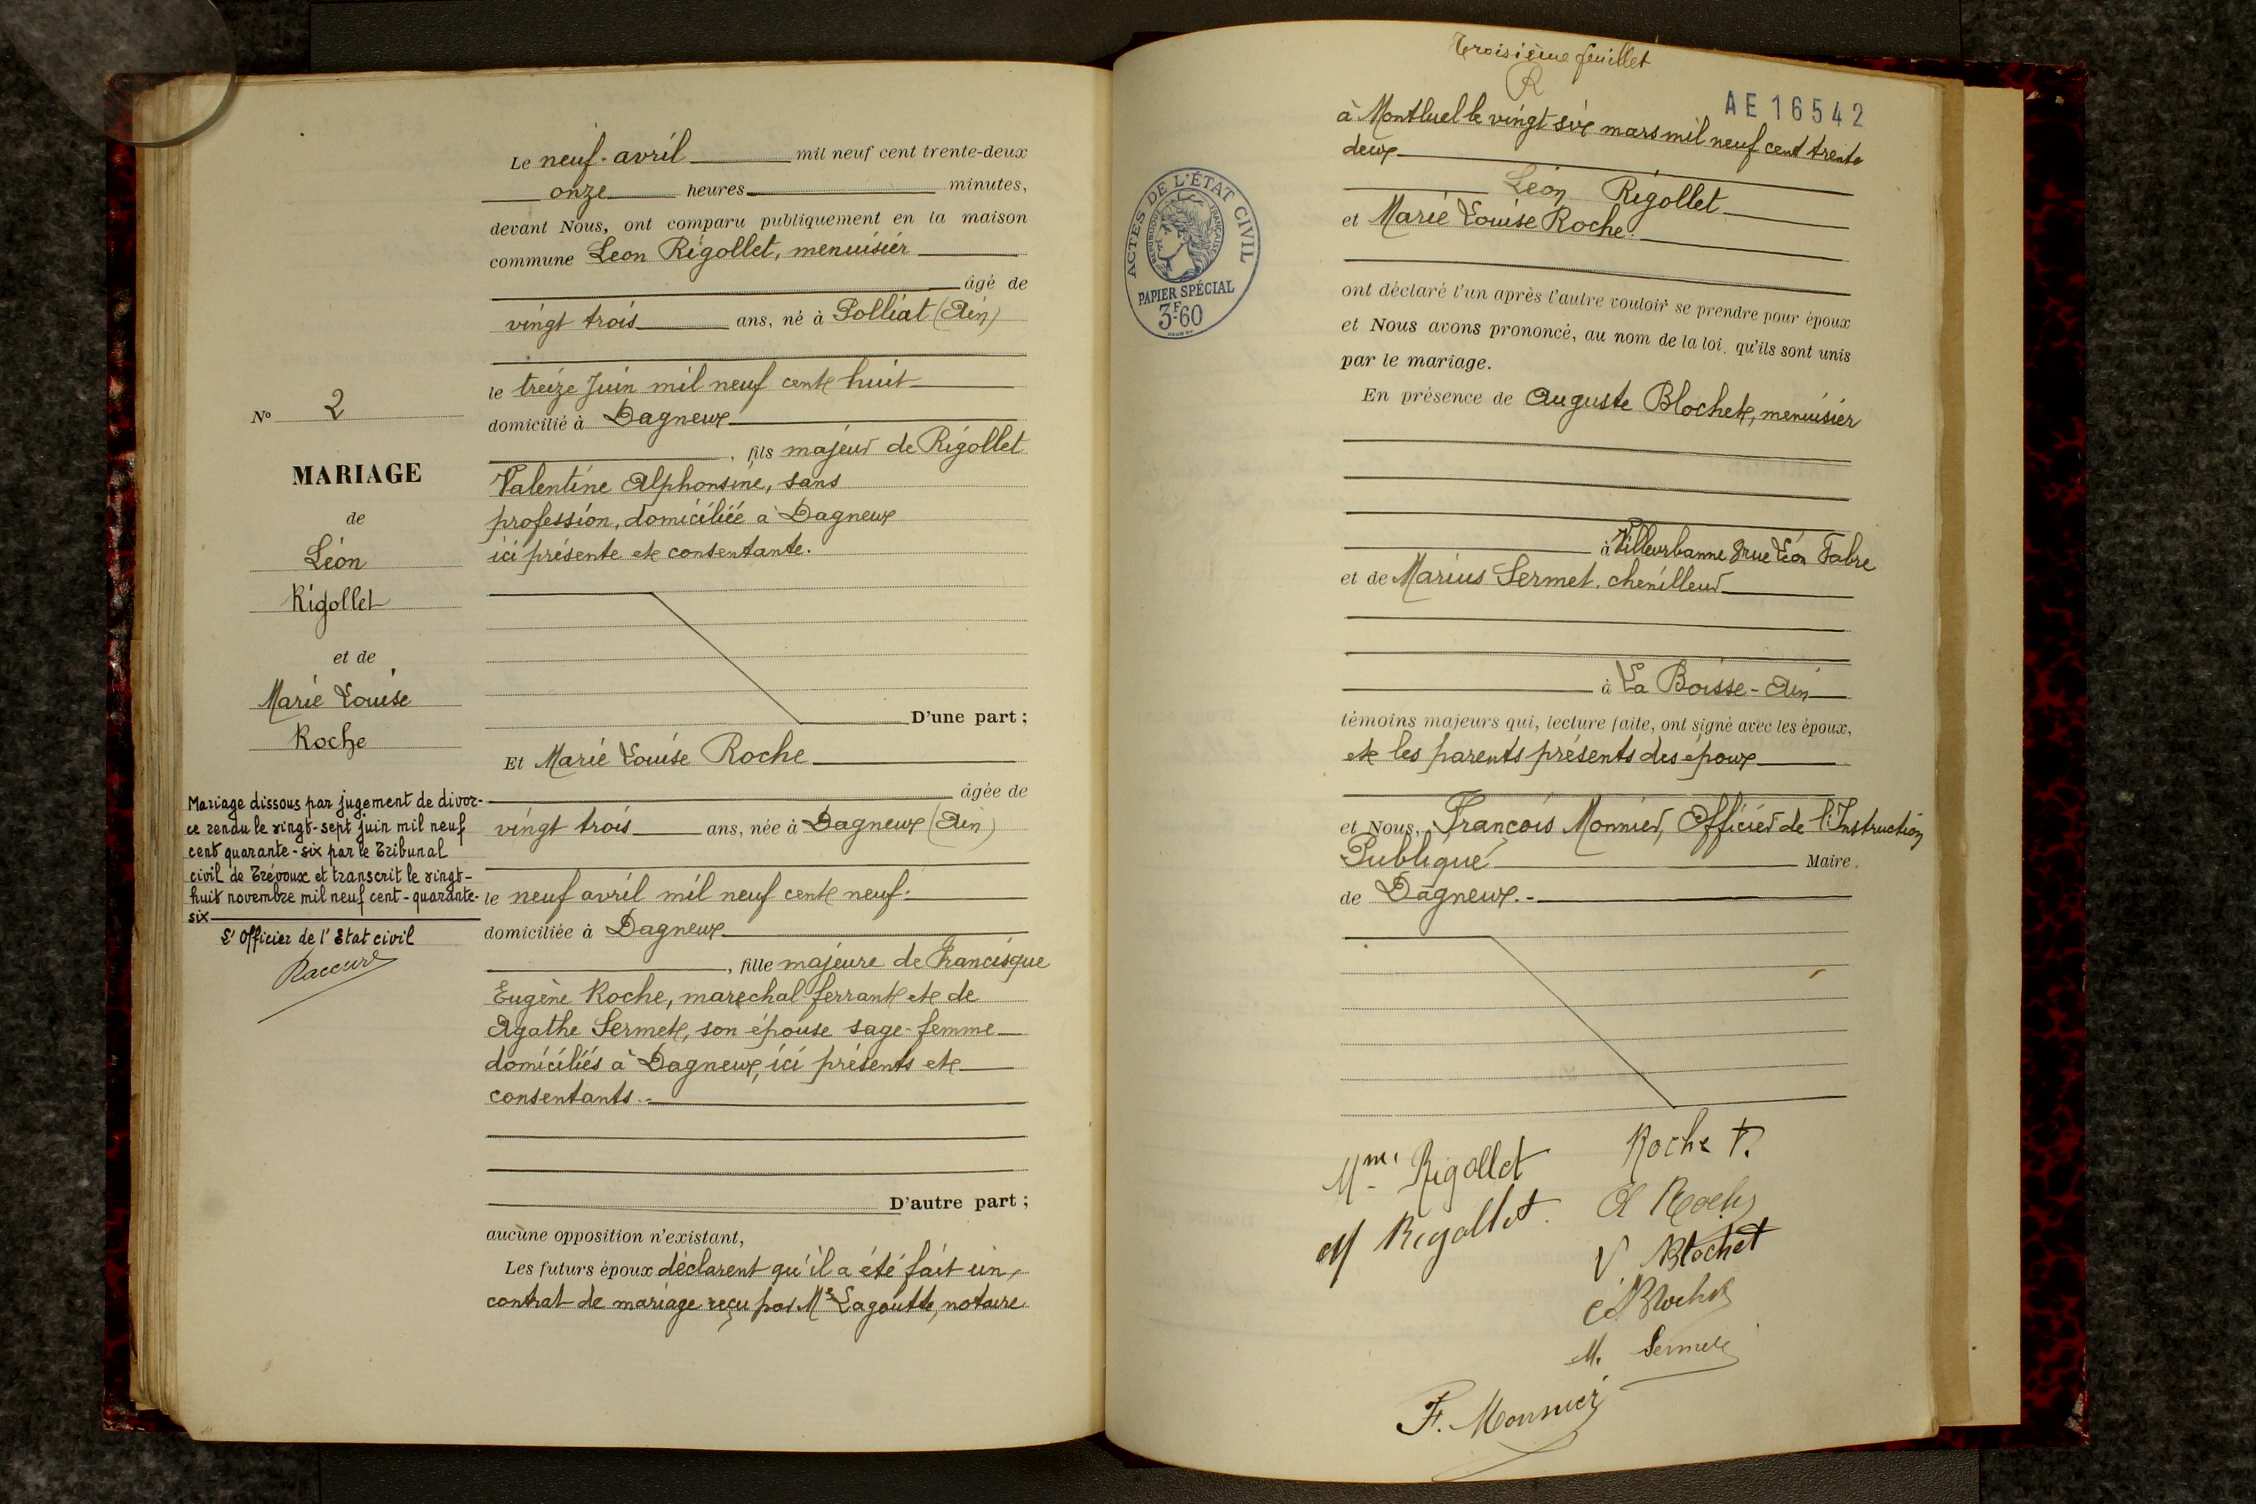 Le neuf avril mil neuf cent trente-deux
onze heures minutes,
devant Nous, ont comparu publiquement en la maison
commune Léon Rigollet, menuisier
âgé de
vingt trois ans, né à Polliat (Ain)
le treize Juin mil neuf cent huit
domicilié à Dagneux
, fils majeur de Rigollet
Valentine Alphonsine, sans
profession, domiciliée à Dagneux
ici présente et consentante.
D'une part ;
Et Marie Louise Roche
âgée de
vingt trois ans, née à Dagneux (Ain)
le neuf avril mil neuf cent neuf.
domiciliée à Dagneux
, fille majeure de Francisque
Eugène Roche, marechal-ferrant et de
Agathe Sermet, son épouse sage-femme
domiciliés à Dagneux, ici présents et
consentants.
D'autre part ;
aucune opposition n'existant,
Les futurs époux déclarent qu'il a été fait un
contrat de mariage reçu par Me Lagoutte, notaire
N° 2
MARIAGE
de
Léon
Rigollet
et de
Marie Louise
Roche
Mariage dissous par jugement de divor-
ce rendu le vingt-sept juin mil neuf
cent quarante-six par le Tribunal
civil de Trévoux et transcrit le vingt-
huit novembre mil neuf cent-quarante-
six
L'Officier de l'Etat civil
Troisième feuillet
R
AE 16542
à Montluel le vingt six mars mil neuf cent trente
deux
Léon Rigollet
et Marie Louise Roche.
ont déclaré l'un après l'autre vouloir se prendre pour époux
et Nous avons prononcé, au nom de la loi, qu'ils sont unis
par le mariage.
En présence de Auguste Blochet, menuisier
à Villeurbanne rue Léon Fabre
et de Marius Sermet, chenilleur
à La Boisse - Ain
témoins majeurs qui, lecture faite, ont signé avec les époux,
et les parents présents des epoux
et Nous, François Monnier, Officier de l'Instruction
Publique Maire
de Dagneux.
ACTES DE L'ÉTAT CIVIL
RÉPUBLIQUE FRANÇAISE
PAPIER SPÉCIAL
3F60
Mme Rigollet
Roche F.
M Rigollet
A Roche
V Blochet
Blochet
M. Sermet
F. Monnier